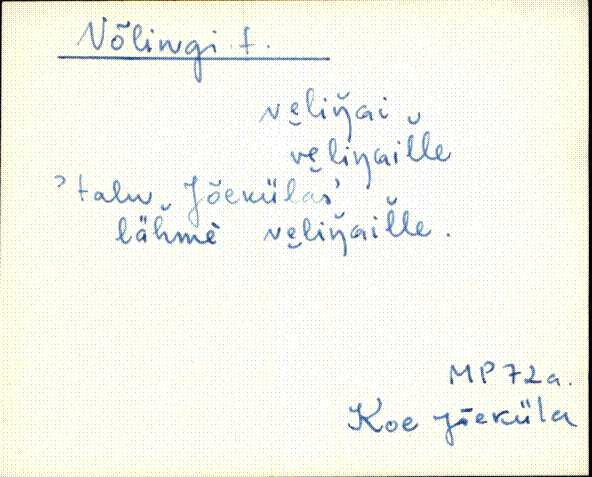 Nõlingi t.
ve̮liŋ̆ai
ve̮liŋail̆le
'talu Jõekülas'
läh̆mè ve̮liŋ̆ail̆le.
MP 72a.
Koe Jõeküla